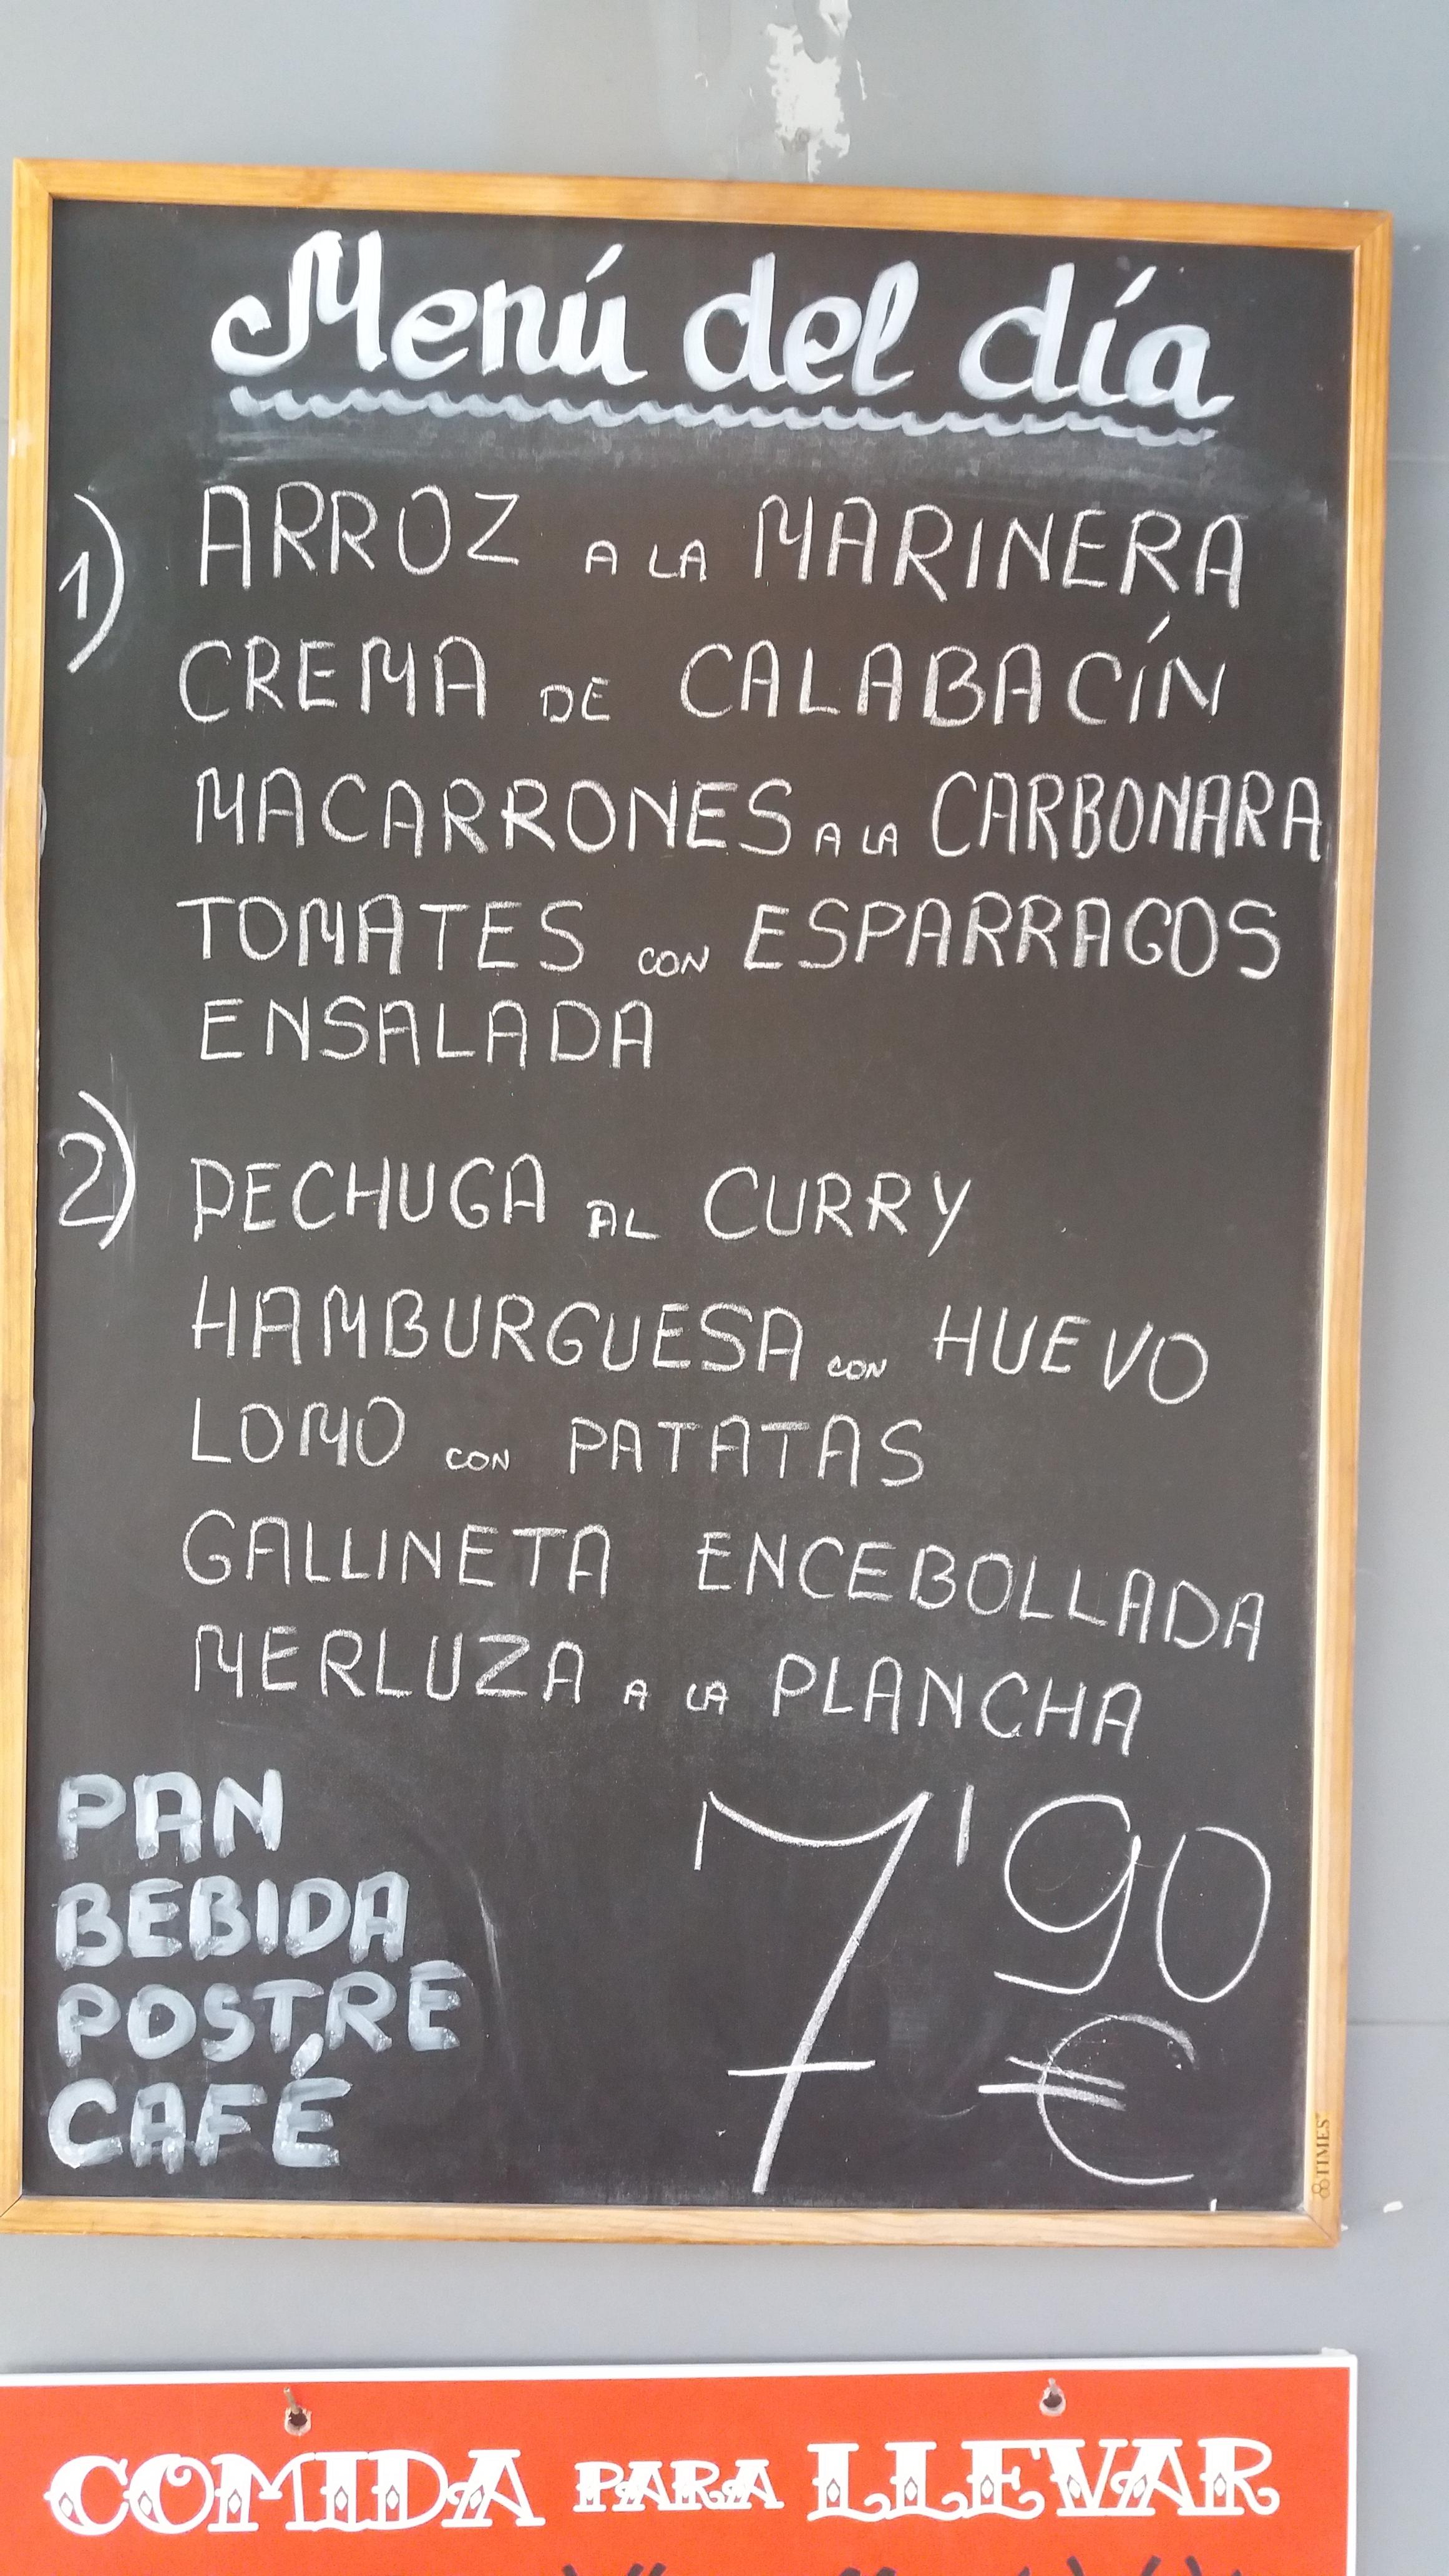 Menú del día
1) ARROZ A LA MARINERA
CREMA DE CALABACÍN
MACARRONES A LA CARBONARA
TOMATES CON ESPARRAGOS
ENSALADA
2) PECHUGA AL CURRY
HAMBURGUESA CON HUEVO
LOMO CON PATATAS
GALLINETA ENCEBOLLADA
MERLUZA A LA PLANCHA
PAN
BEBIDA
POSTRE
CAFÉ
7'90
€
TIMES
COMIDA PARA LLEVAR